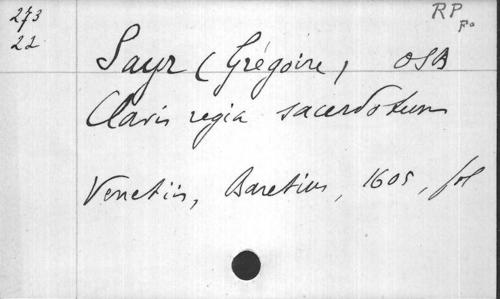 273
22
RP
F°
Sayr (Grégoire) OSB
Clavis regia sacerdotum
Venetiis, Baretius, 1605, fol